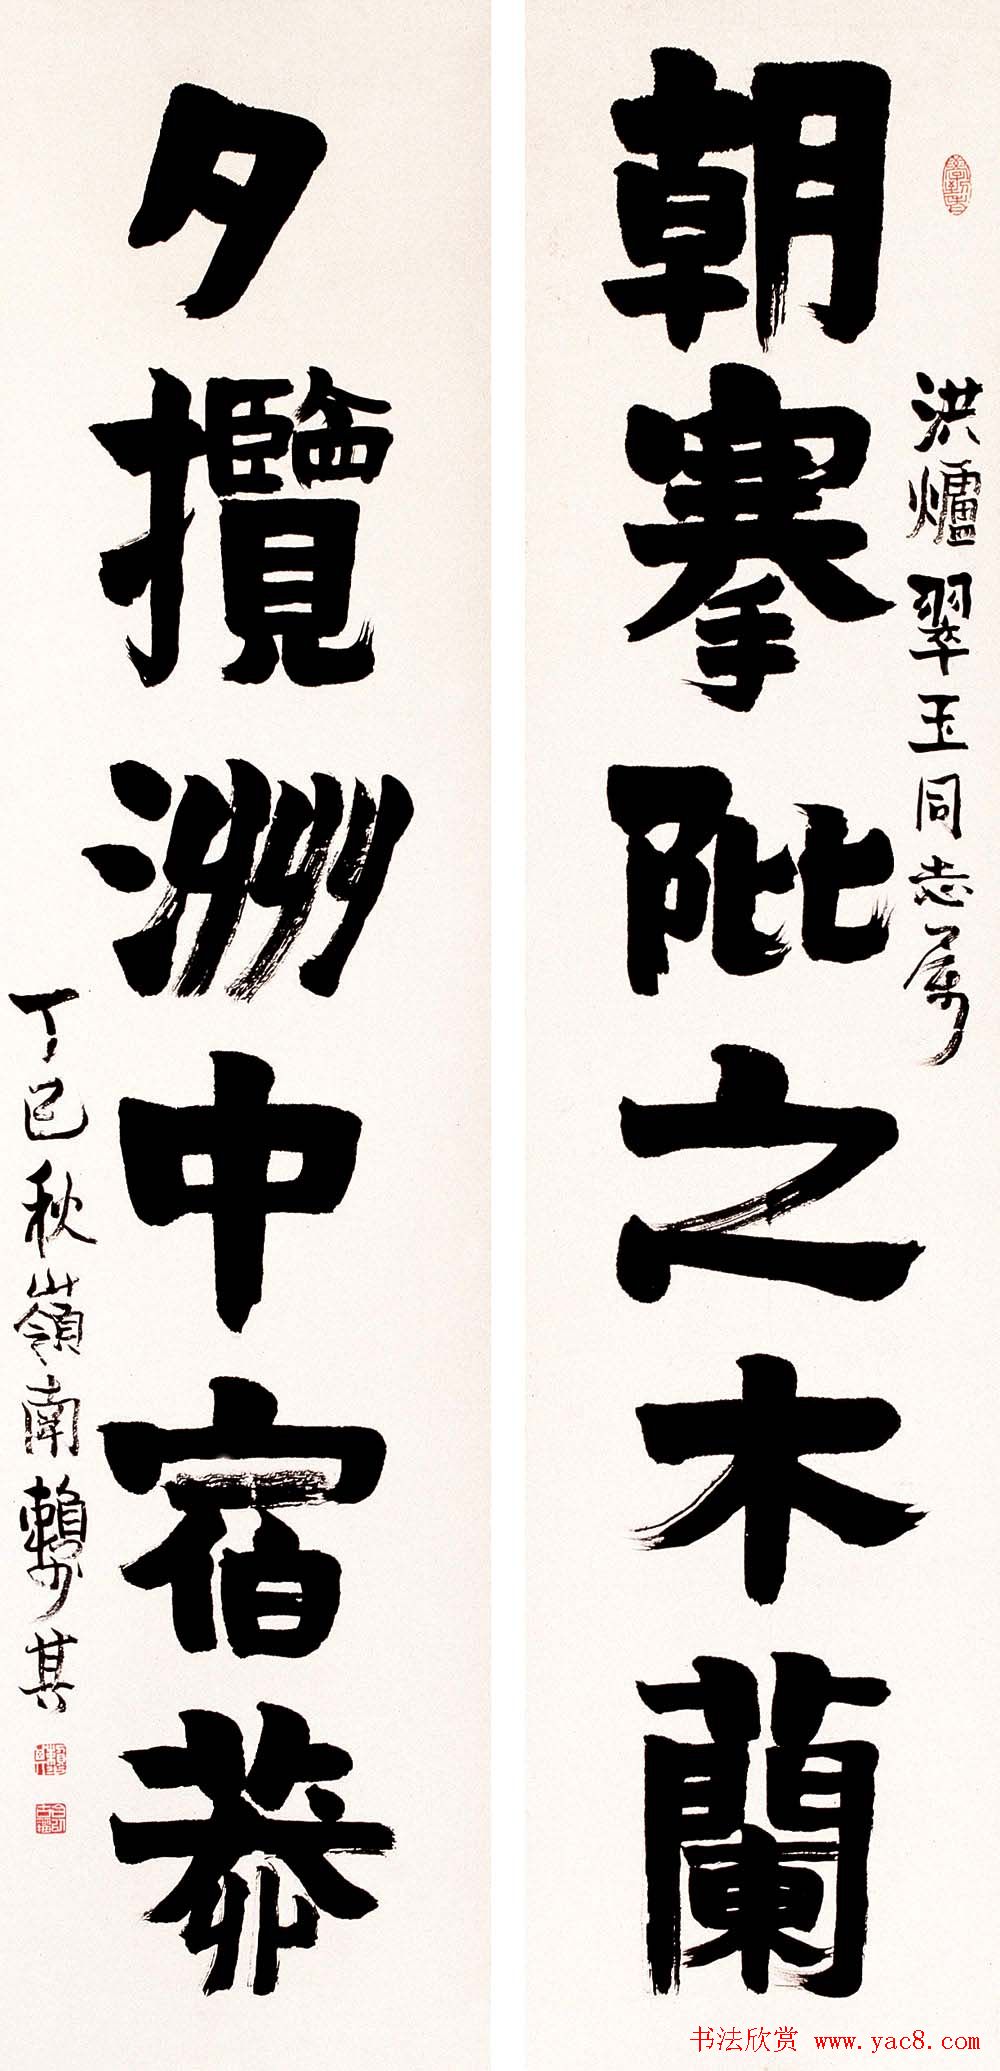 朝搴阰之木蘭
洪爐翠玉同志属
夕攬洲中宿莽
丁巳秋嶺南賴少其
书法欣赏 www.yac8.com